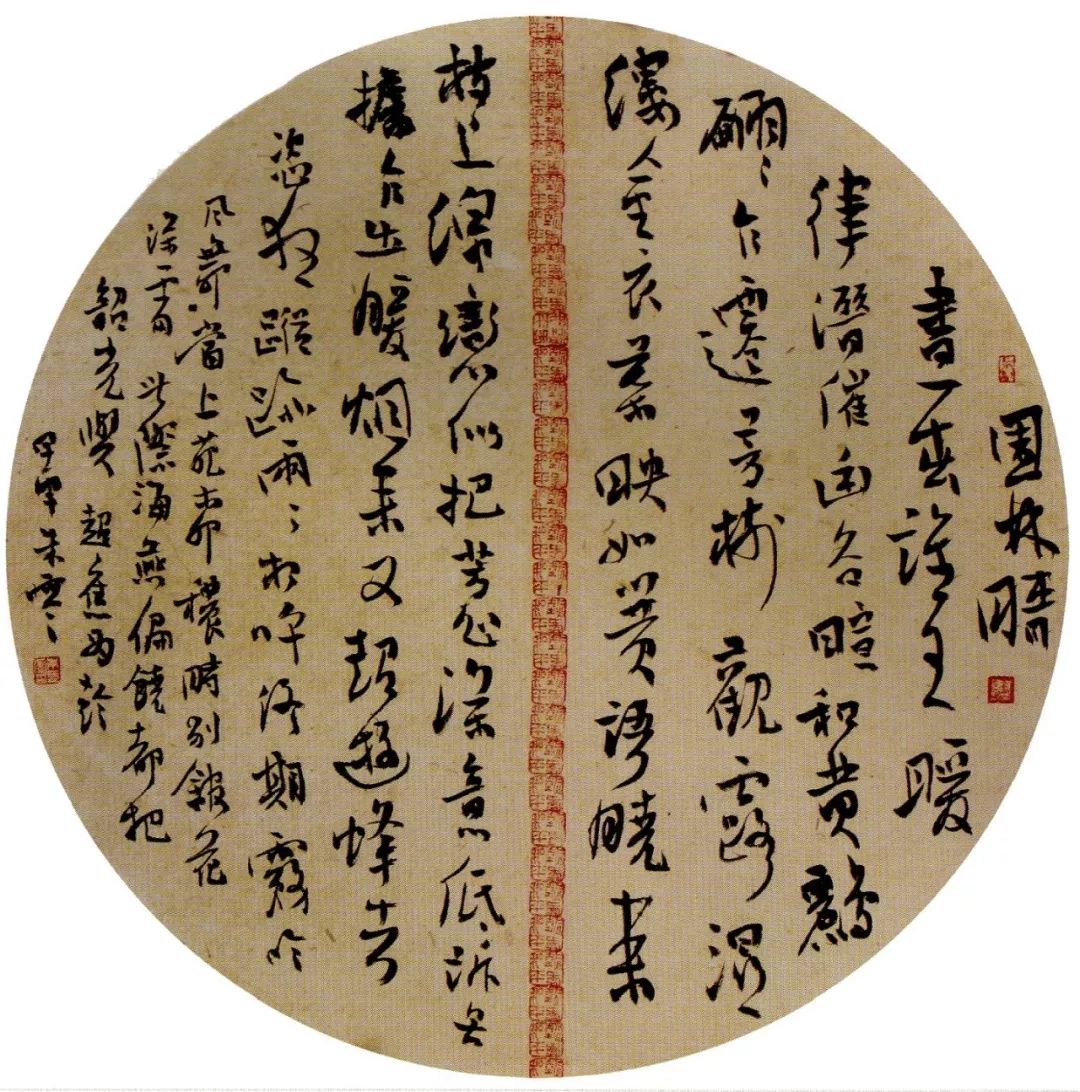 園林晴
晝春誰主暖
律潛催幽谷暄和黄鸝
翩〻乍遷芳樹觀露濕
縷金衣葉映如簧語曉來
枝上綿蠻似把芳心深意低訴無
據乍出暖烟來又趁遊蜂去
恣狂蹤迹兩〻相呼終朝霧吟
風舞當上苑柳穠時別館花
深處此際海燕偏饒都把
韶光與